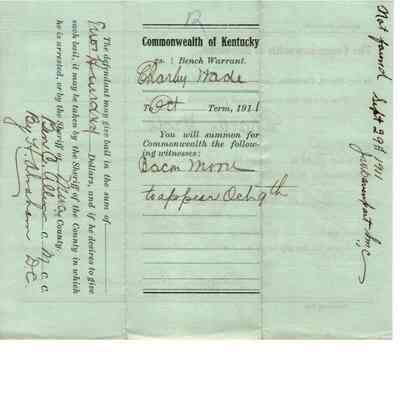 The defendant may give bail in the sum of
Two Hundred Dollars, and if he desires to give
such bail, it may be taken by the Sheriff of the County in which
he is arrested, or by the Sheriff of County.
Ben C. Allen c. M. c. c.
By H. Abraham D.C.
Commonwealth of Kentucky
vs. Bench Warrant.
Charley Wade
To Oct Term, 1911
You will summon for
Commonwealth the follow-
ing witnesses:
Bacon Moore
to appear Oct 9th
Not found Sept 29th 1911